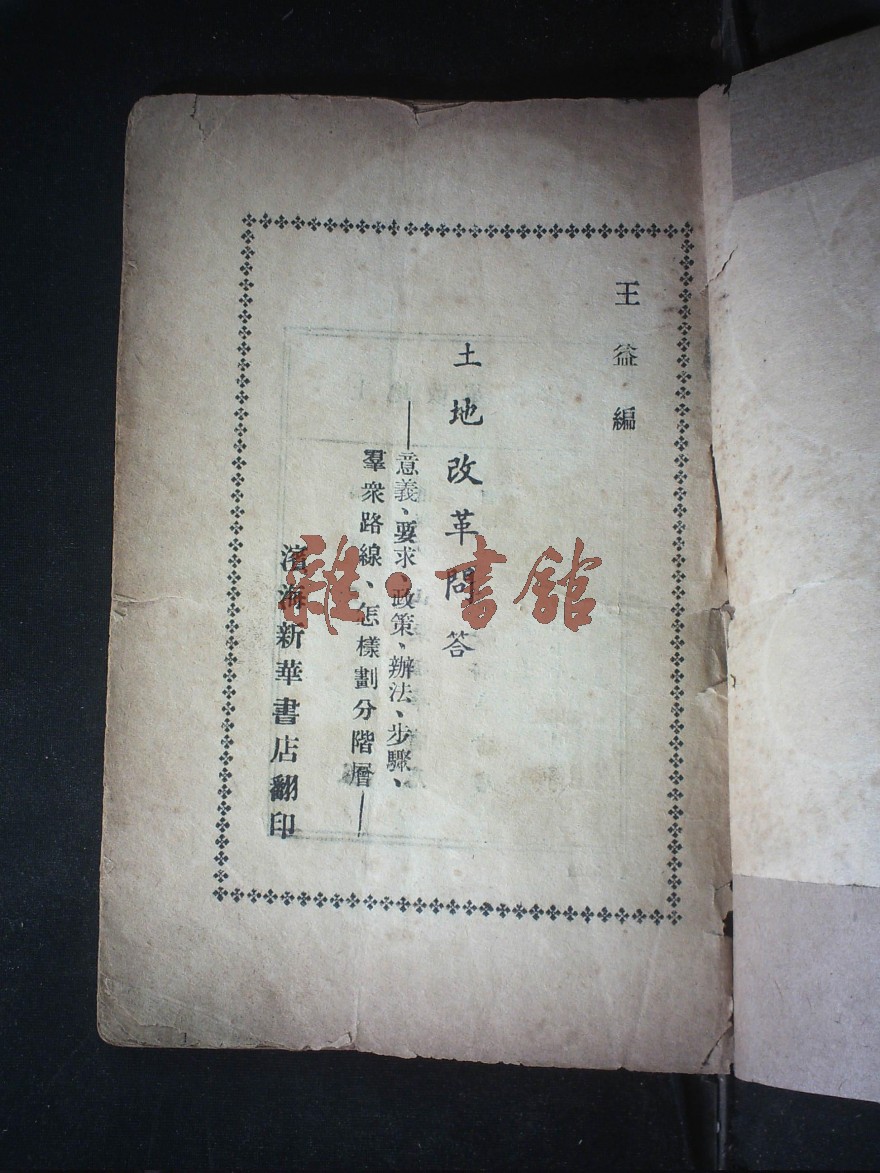 王益編
土地改革問答
——意義、要求、政策、辦法、步驟、
羣衆路線、怎樣劃分階層——
濱海新華書店翻印
雜·書館